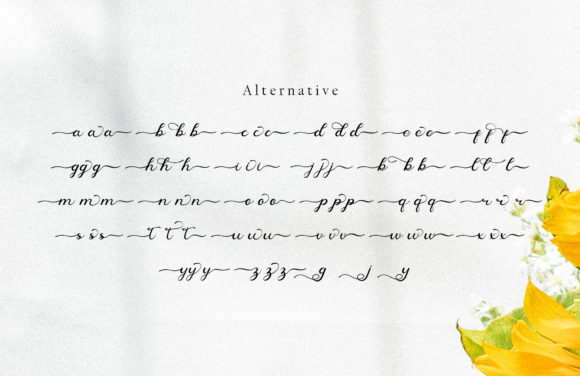 Alternative
a a a b b b c c c d d d e e e f f f
g g g h h h i i i j j j k k k l l l
m m m n n n o o o p p p q q q r r r
s s s t t t u u u v v v w w w x x x
y y y z z z g j y